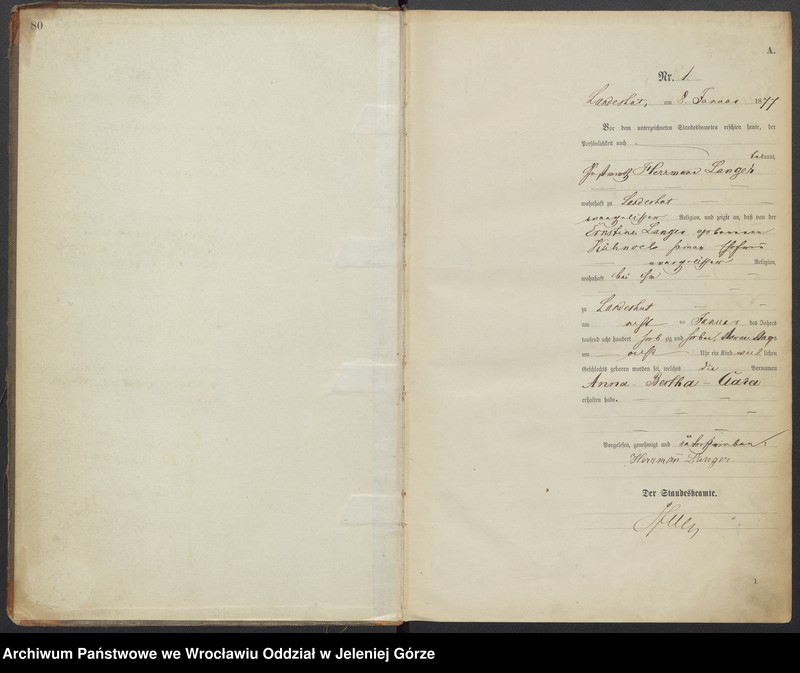 80
A.
Nr. 1
Landeshut, am 8. Januar 1877
Vor dem unterzeichneten Standesbeamten erschien heute, der
Persönlichkeit nach
bekannt,
Herrmann Langer
wohnhaft zu Landeshut
evangelischer Religion, und zeigte an, daß von der
Ernstine Langer geborenen
seiner Ehefrau
evangelischer Religion,
wohnhaft bei ihm
zu Landeshut
am Januar des Jahres
tausend acht hundert siebzig und sieben, Vormittags
um Uhr ein Kind weiblichen
Geschlechts geboren worden sei, welches die Vornamen
Anna Bertha Clara
erhalten habe.
Vorgelesen, genehmigt und unterschrieben
Herrmann Langer
Der Standesbeamte.
1
Archiwum Państwowe we Wrocławiu Oddział w Jeleniej Górze